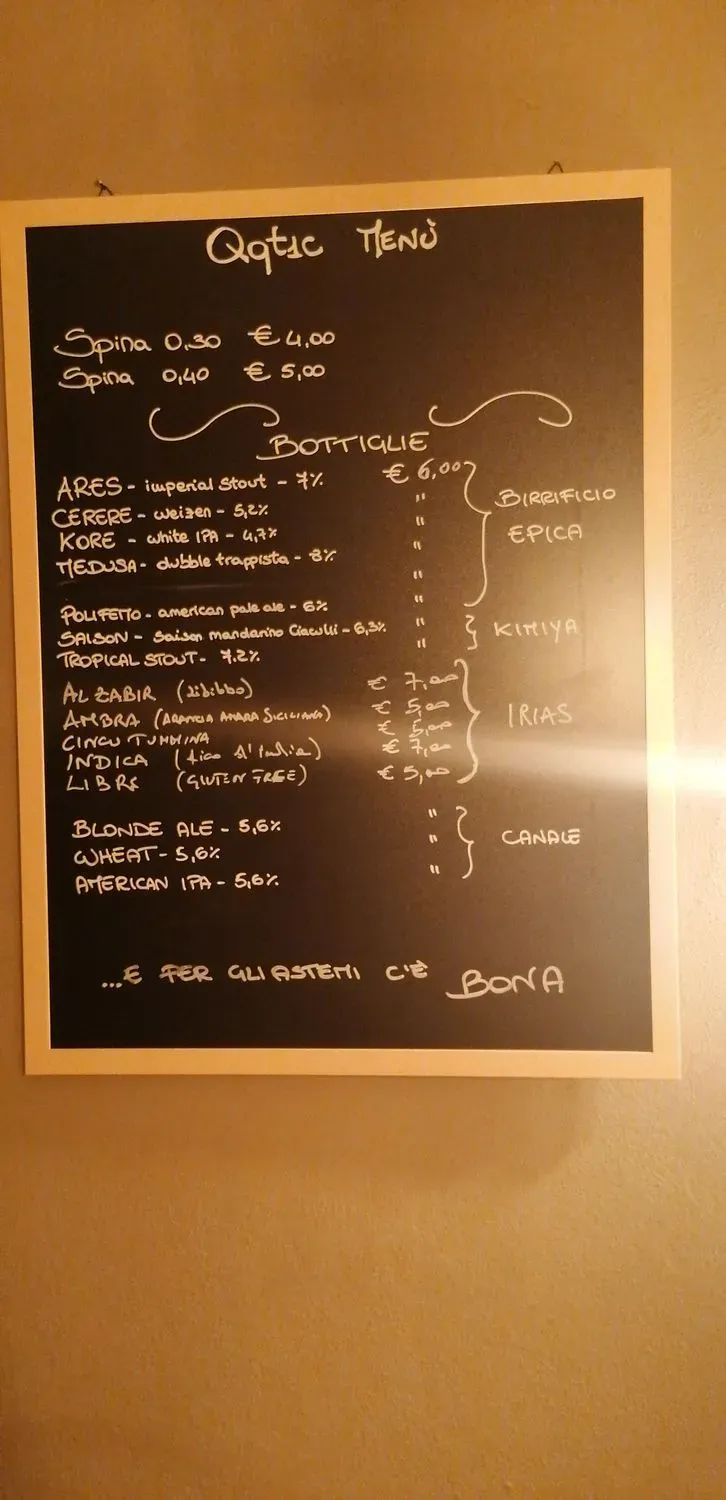 Qqt1c MENÙ
Spina 0,30 € 4,00
Spina 0,40 € 5,00
BOTTIGLIE
ARES - imperial stout - 7% € 6,00
CERERE - weizen - 5,2% "
KORE - white IPA - 4,7% "
MEDUSA - dubble trappista - 8% "
BIRRIFICIO
EPICA
"
POLIFEMO - american pale ale - 6% "
SAISON - saison mandarino Ciaculli - 6,3% "
TROPICAL STOUT - 7.2% "
KIMIYA
AL ZABIR (zibibbo) € 7,00
AMBRA (ARANCIA AMARA SICILIANA) € 5,00
CINCU TUMMINA € 5,00
INDICA (fico d'india) € 7,00
LIBRE (GLUTEN FREE) € 5,00
IRIAS
BLONDE ALE - 5,6% "
WHEAT - 5,6% "
AMERICAN IPA - 5,6% "
CANALE
...E PER GLI ASTEMI C'È BONA